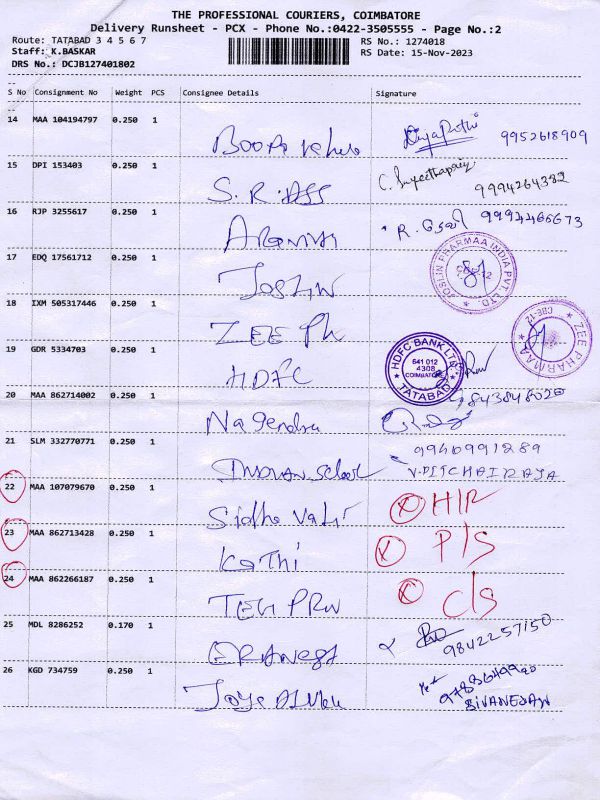 THE PROFESSIONAL COURIERS, COIMBATORE
Delivery Runsheet - PCX - Phone No.:0422-3505555 - Page No.:2
Route: TATABAD 3 4 5 6 7 RS No.: 1274018
Staff: K.BASKAR RS Date: 15-Nov-2023
DRS No.: DCJB127401802
S No Consignment No Weight PCS Consignee Details Signature
14 MAA 104194797 0.250 1
9952618909
15 DPI 153403 0.250 1
S.R. 9994264382
16 RJP 3255617 0.250 1
R. 9994466673
17 EDQ 17561712 0.250 1
JOSLIN PHARMAA INDIA PVT. LTD. CBE-12
18 IXM 505317446 0.250 1
ZEE Ph
ZEE PHARMAA CBE-12
19 GDR 5334703 0.250 1
HDFC
HDFC BANK LTD. 641 012 4308 COIMBATORE TATABAD
20 MAA 862714002 0.250 1
Nagendra
9843848020
21 SLM 332770771 0.250 1
9940991289
V.PITCHAIRAJA
22 MAA 107079670 0.250 1
Sidha
23 MAA 862713428 0.250 1
Kathi P/S
24 MAA 862266187 0.250 1
C/S
25 MDL 8286252 0.170 1
9842257150
26 KGD 734759 0.250 1
SIVANESAN